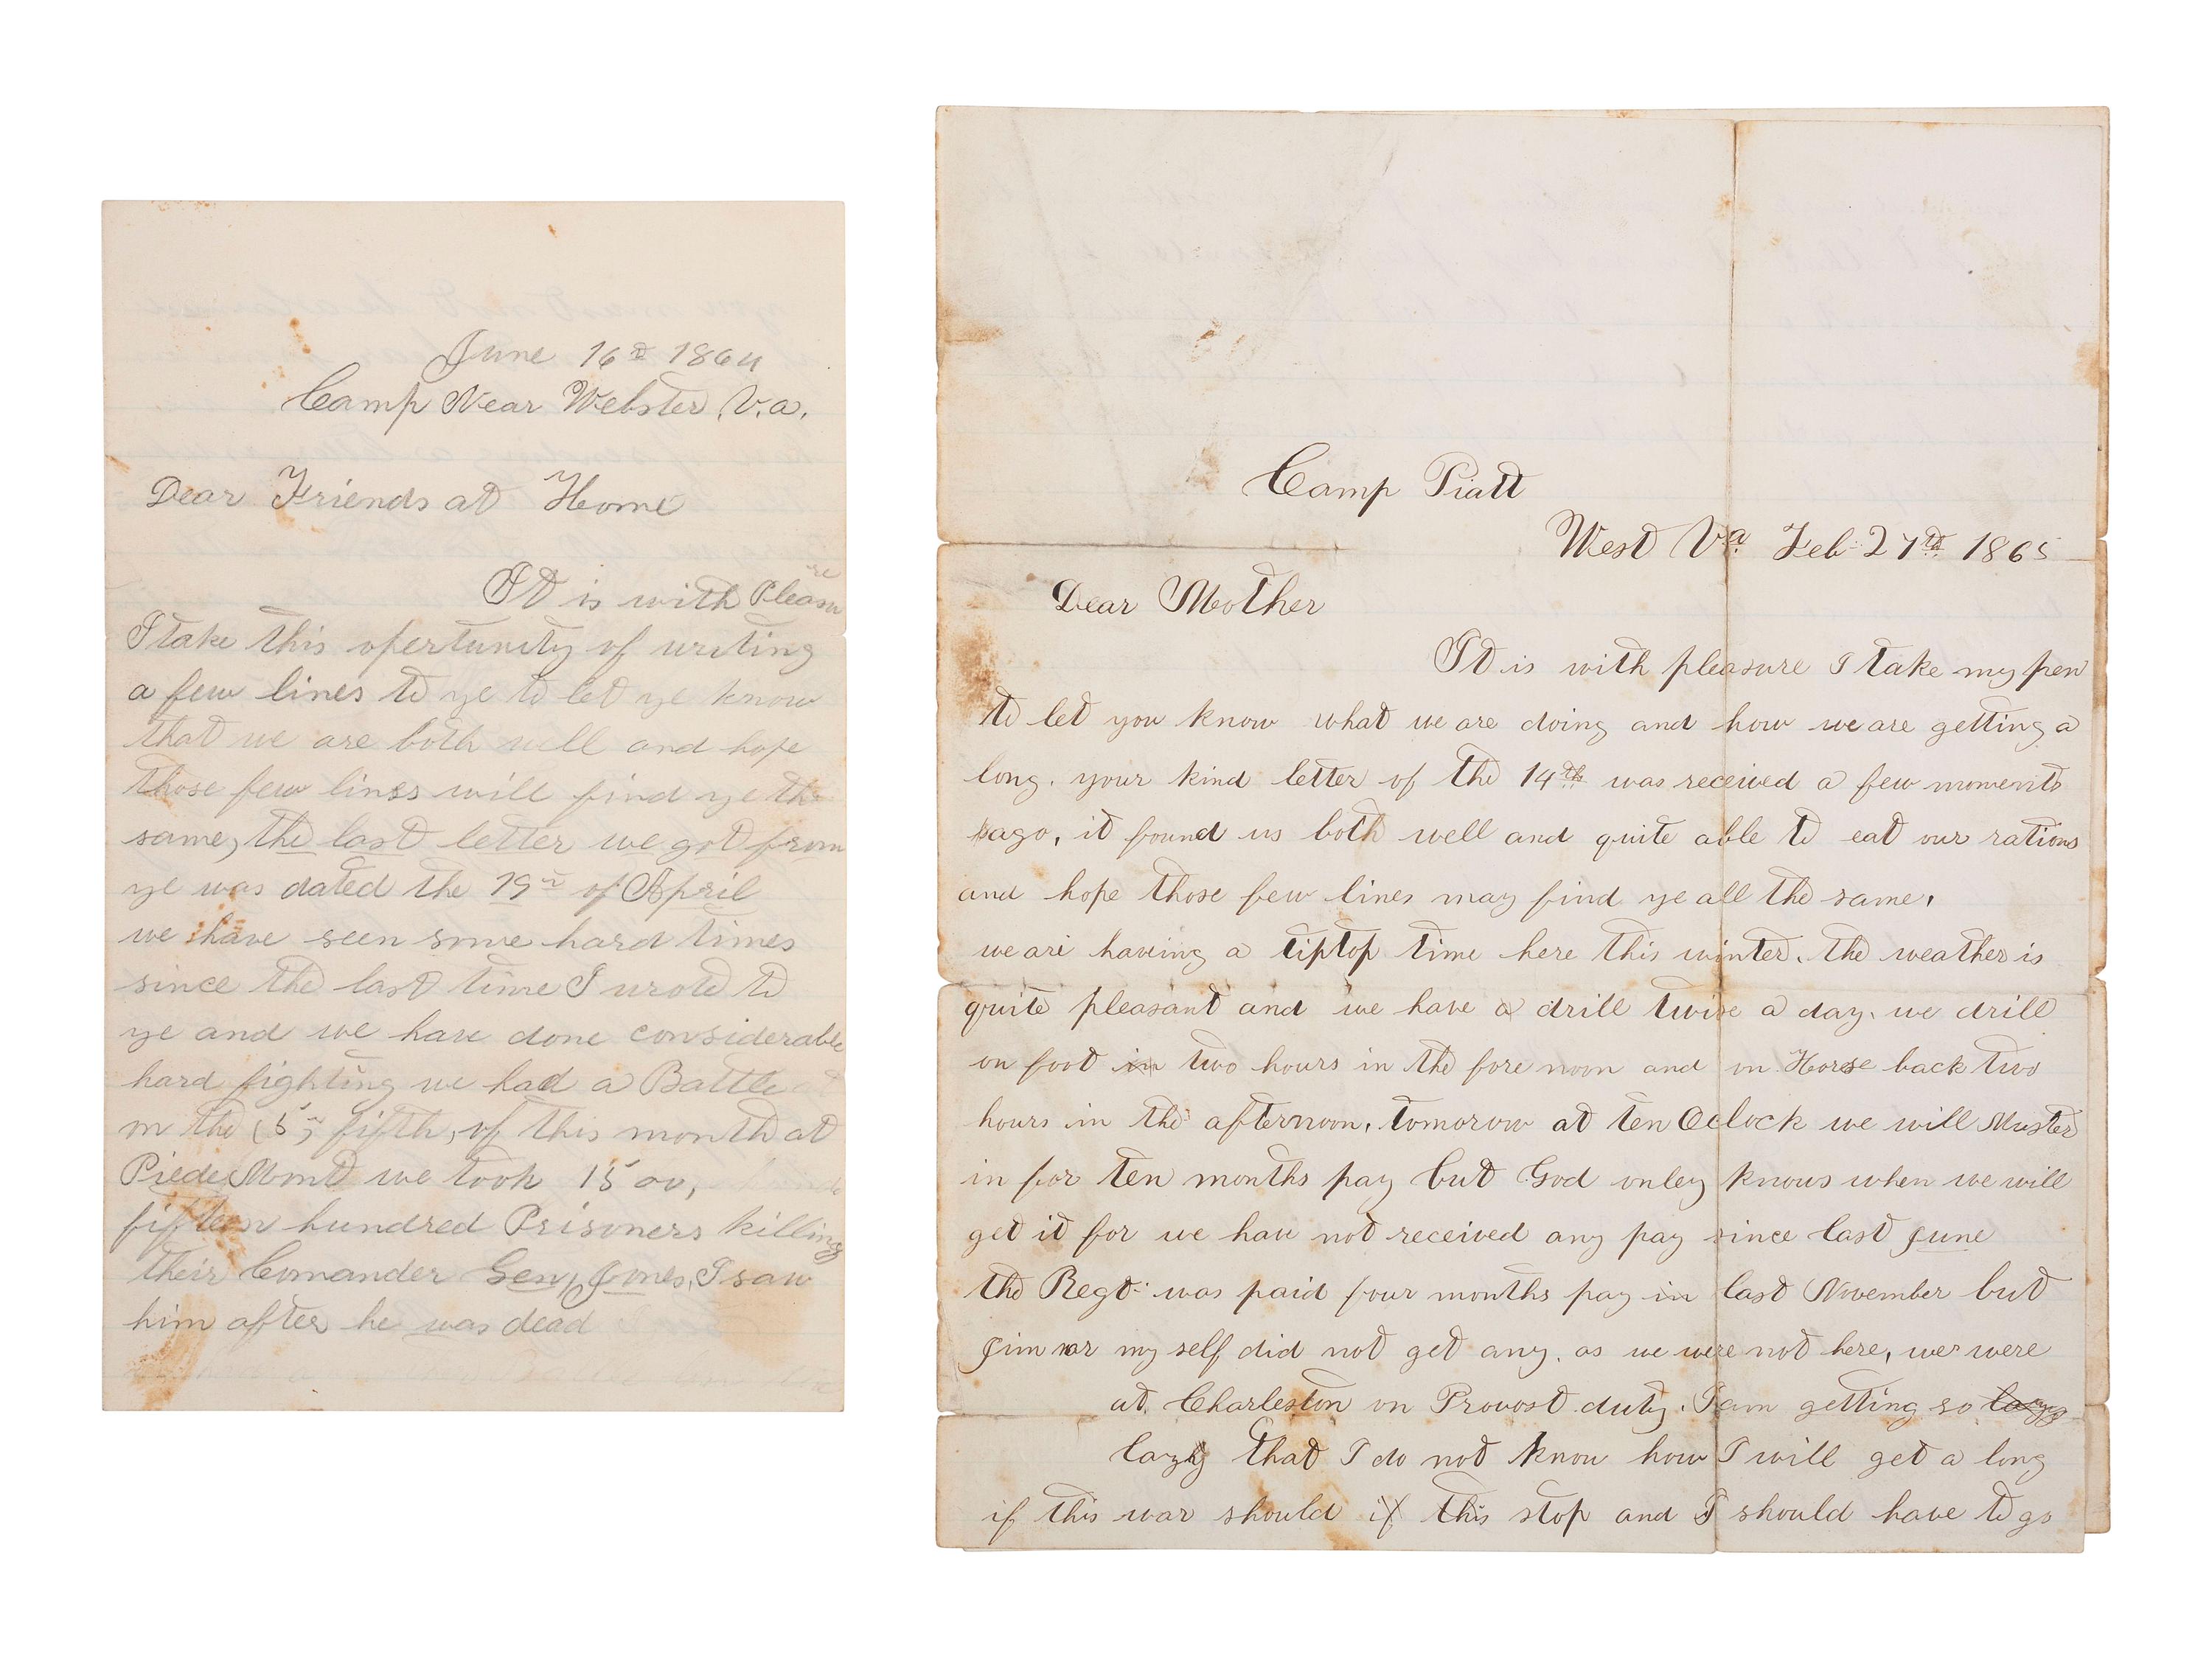 June 16th 1864
Camp Near Webster, V.a.
Dear Friends at Home
It is with Pleasure
I take this opertunity of writing
a few lines to ye to let ye know
that we are both well and hope
those few lines will find ye the
same, the last letter we got from
ye was dated the 19th of April
we have seen some hard times
since the last time I wrote to
ye and we have done considerable
hard fighting we had a Battle
on the (5th) fifth, of this month at
PiedeMont we took 1500,
fifteen hundred Prisoners killing
their Comander Gen, Jones, I saw
him after he was dead
Camp Piatt
West Va. Feb 27th 1865
Dear Mother
It is with pleasure I take my pen
to let you know what we are doing and how we are getting a
long. your kind letter of the 14th was received a few moments
ago, it found us both well and quite able to eat our rations
and hope those few lines may find ye all the same,
we are having a tiptop time here this winter. the weather is
quite pleasant and we have a drill twise a day. we drill
on foot in two hours in the fore noon and on Horse back two
hours in the afternoon, tomorow at ten Oclock we will Muster
in for ten months pay but God onley knows when we will
get it for we have not received any pay since last June
the Regt. was paid four months pay in last November but
Jim nor my self did not get any. as we were not here, wer were
at Charleston on Provost duty. I am getting so lazy
lazy that I do not know how I will get a long
if this war should if this stop and I should have to go